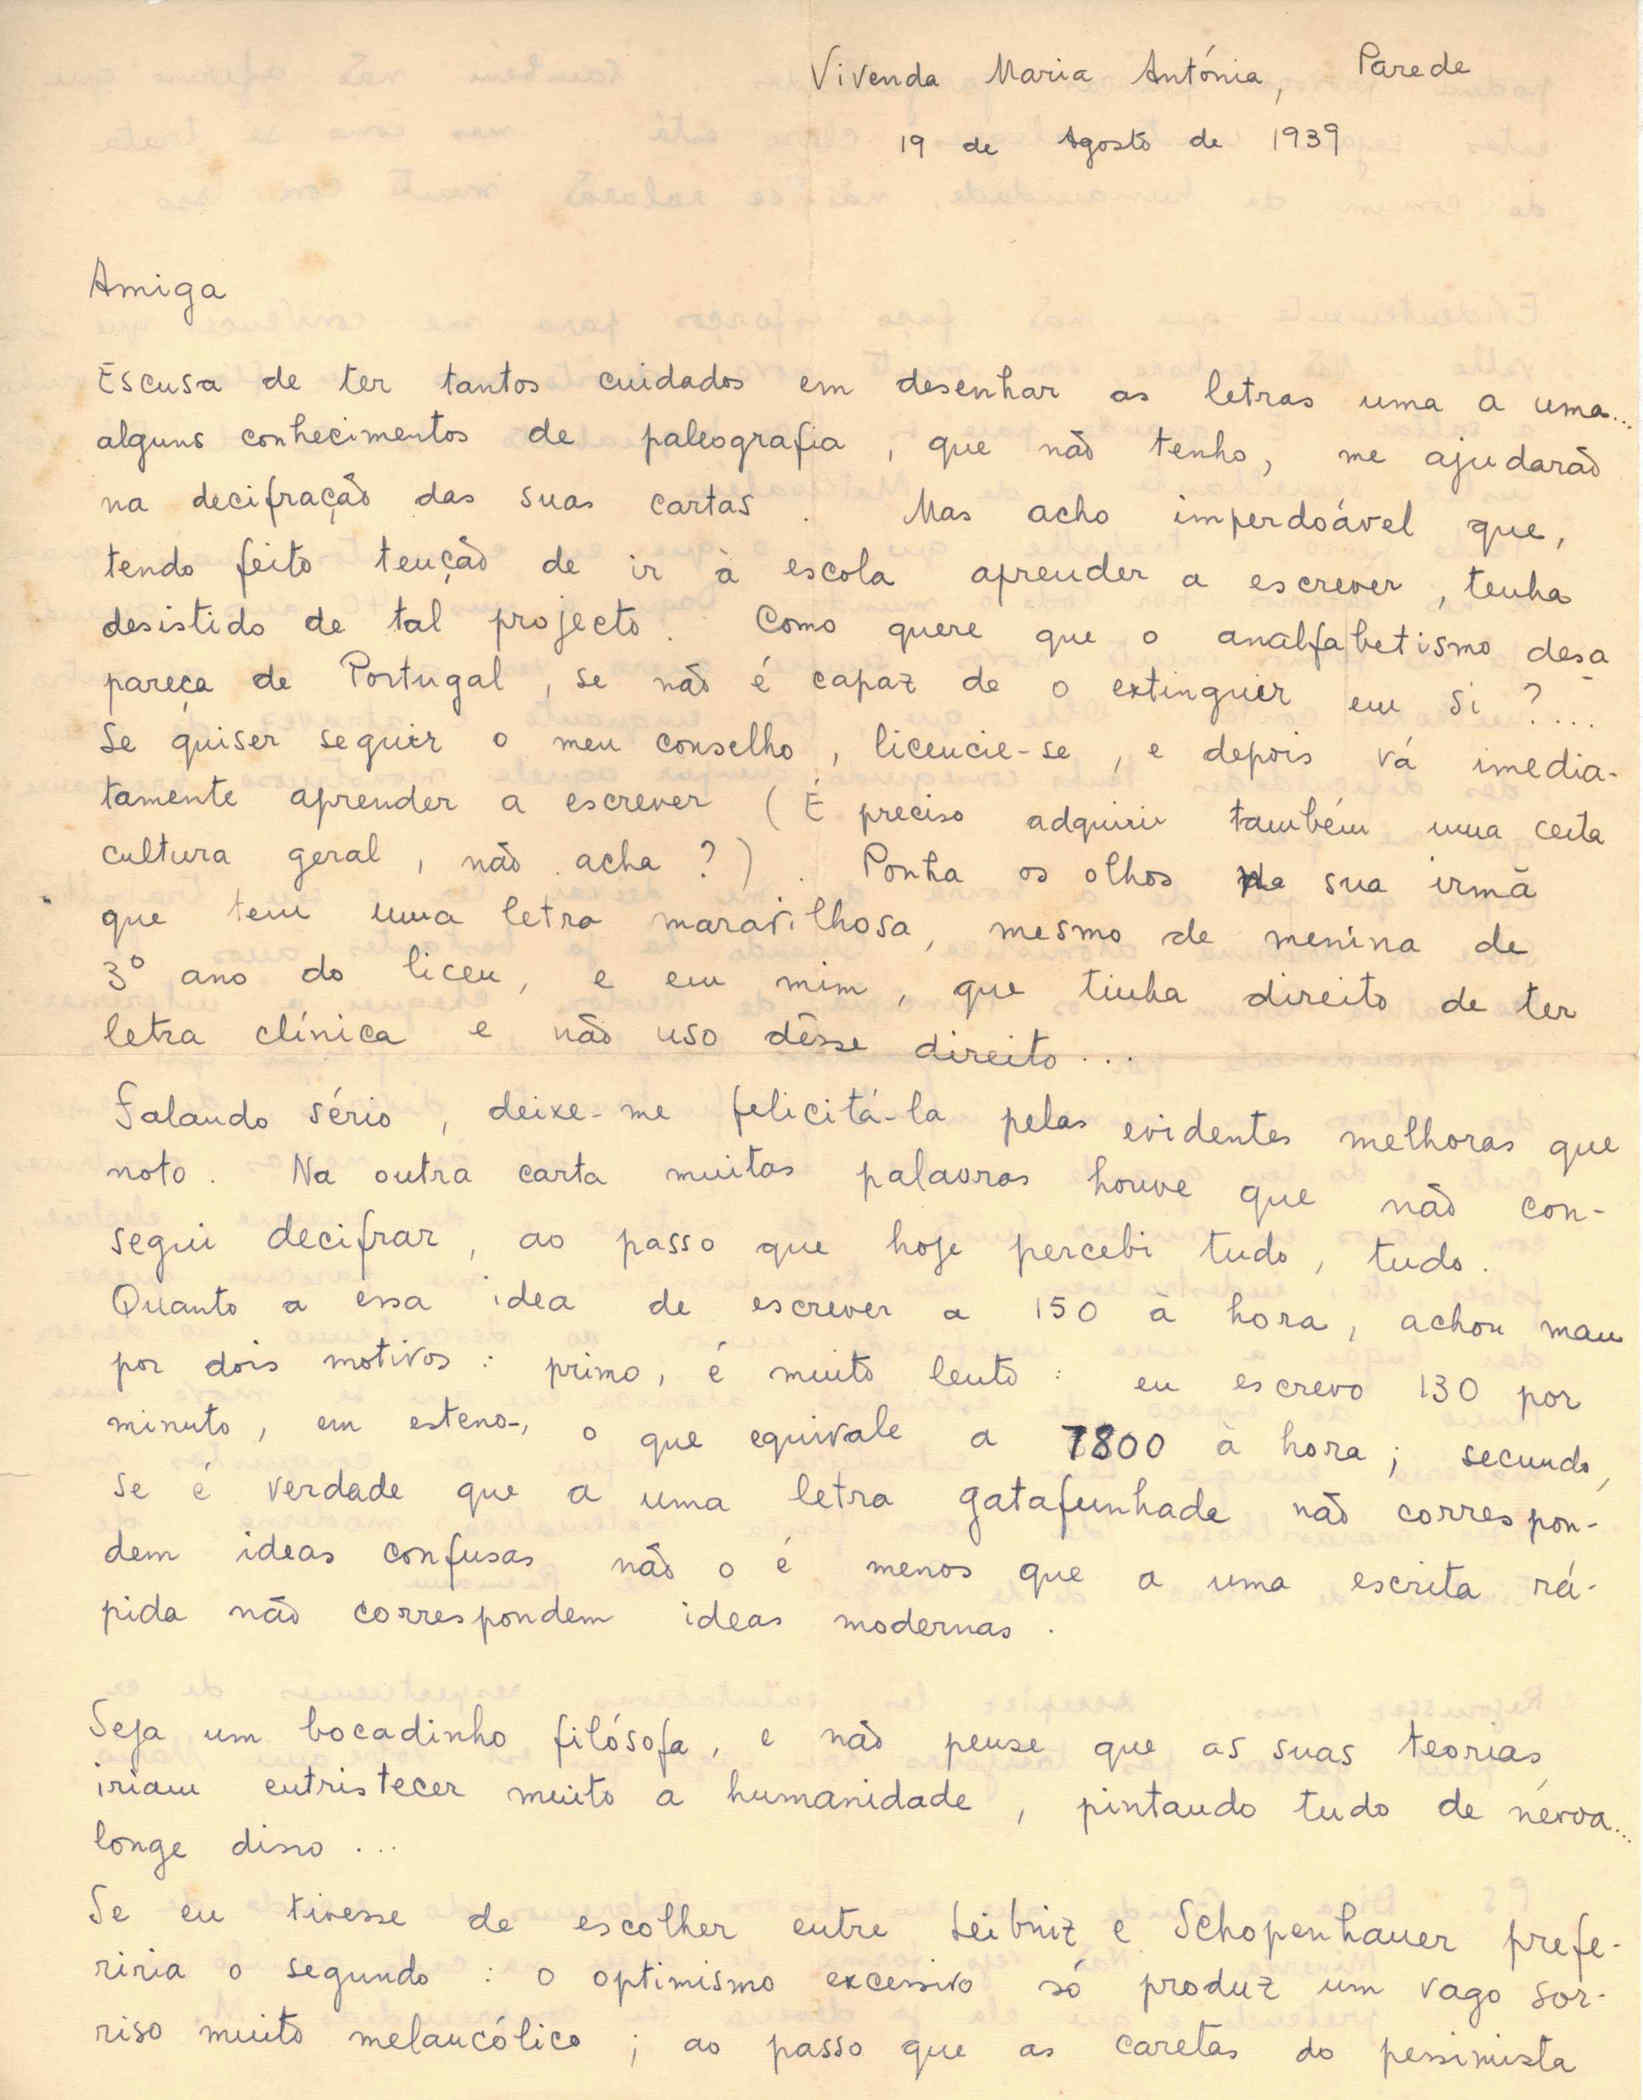 Vivenda Maria Antónia, Parede
19 de Agosto de 1939
Amiga
Escusa de ter tantos cuidados em desenhar as letras uma a uma...
alguns conhecimentos de paleografia, que não tenho, me ajudarão
na decifração das suas cartas. Mas acho imperdoável que,
tendo feito tenção de ir à escola aprender a escrever, tenha
desistido de tal projecto. Como quere que o analfabetismo desa-
pareça de Portugal, se não é capaz de o extinguir em si?...
Se quiser seguir o meu conselho, licencie-se, e depois vá imedia-
tamente aprender a escrever (É preciso adquirir também uma certa
cultura geral, não acha?). Ponha os olhos na sua irmã
que tem uma letra maravilhosa, mesmo de menina de
3º ano do liceu, e em mim, que tinha direito de ter
letra clínica e não uso dêsse direito...
Falando sério, deixe-me felicitá-la pelas evidentes melhoras que
noto. Na outra carta muitas palavras houve que não con-
segui decifrar, ao passo que hoje percebi tudo, tudo.
Quanto a essa idea de escrever a 150 à hora, achou mau
por dois motivos: primo, é muito lento: eu escrevo 130 por
minuto, em esteno-, o que equivale a 7800 à hora; secundo,
se é verdade que a uma letra gatafunhade não correspon-
dem ideas confusas não o é menos que a uma escrita rá-
pida não correspondem ideas modernas.
Seja um bocadinho filósofa, e não pense que as suas teorias
iriam entristecer muito a humanidade, pintando tudo de névoa...
longe disso...
Se eu tivesse de escolher entre Leibniz e Schopenhauer prefe-
riria o segundo: o optimismo excessivo só produz um vago sor-
riso muito melancólico; ao passo que as caretas do pessimista